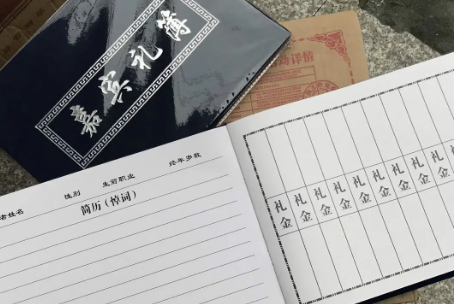 嘉宾礼簿
详情
姓名 性别 生前职业 终年岁数
简历（悼词）
礼金
礼金
礼金
礼金
礼金
礼金
礼金
礼金
礼金